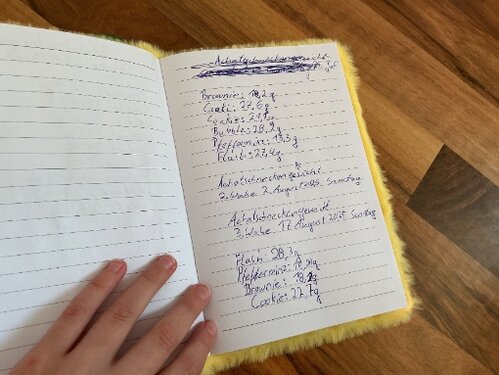 Brownie: 18,2g
Cooki: 27,6g
Cookie: 21,1g
Bubble: 28,2g
Pfefferminz: 13,3g
Flash: 27,4g
Achatschneckengewicht
2. Wabe 2. August 2025 Samstag
Achatschneckengewicht
3. Wabe 17. August 2025 Sonntag
Flash: 28,3g
Pfefferminz: 14,9g
Brownie: 18,2g
Cookie: 22,7g